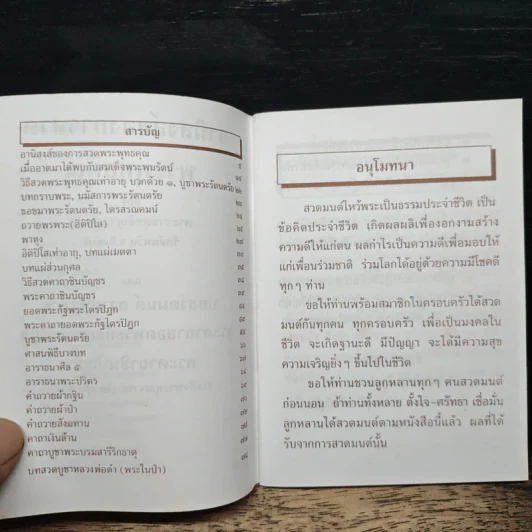 สารบัญ
อานิสงส์ของการสวดพระพุทธคุณ ๕
เมื่ออาตมาได้พบกับสมเด็จพระพนรัตน์
วิธีสวดพระพุทธคุณเท่าอายุ บวกด้วย ๑, บูชาพระรัตนตรัย
บทกราบพระ, นมัสการพระรัตนตรัย
ขอขมาพระรัตนตรัย, ไตรสรณคมน์
ถวายพรพระ(อิติปิโส)
พาหุง
อิติปิโสเท่าอายุ, บทแผ่เมตตา
บทแผ่ส่วนกุศล
วิธีสวดคาถาชินบัญชร
พระคาถาชินบัญชร
ยอดพระกัณฑ์พระไตรปิฎก
พระคาถายอดพระกัณฑ์ไตรปิฎก
บูชาพระรัตนตรัย
ศาสนพิธีบางบท
อาราธนาศีล ๕
อาราธนาพระปริตร
คำถวายผ้ากฐิน
คำถวายผ้าป่า
คำถวายสังฆทาน
คาถาเงินล้าน
คาถาบูชาพระบรมสารีริกธาตุ
บทสวดบูชาหลวงพ่อดำ (พระในป่า)
อนุโมทนา
สวดมนต์ไหว้พระเป็นธรรมประจำชีวิต เป็น
ข้อคิดประจำชีวิต เกิดผลผลิเฟื่องอกงามสร้าง
ความดีให้แก่ตน ผลกำไรเป็นความดีเพื่อมอบให้
แก่เพื่อนร่วมชาติ ร่วมโลกได้อยู่ด้วยความมีโชคดี
ทุกๆ ท่าน
ขอให้ท่านพร้อมสมาชิกในครอบครัวได้สวด
มนต์กันทุกคน ทุกครอบครัว เพื่อเป็นมงคลใน
ชีวิต จะเกิดฐานะดี มีปัญญา จะได้มีความสุข
ความเจริญยิ่งๆ ขึ้นไปในชีวิต
ขอให้ท่านชวนลูกหลานทุกๆ คนสวดมนต์
ก่อนนอน ถ้าท่านทั้งหลาย ตั้งใจ-ศรัทธา เชื่อมั่น
ลูกหลานได้สวดมนต์ตามหนังสือนี้แล้ว ผลที่ได้
รับจากการสวดมนต์นั้น